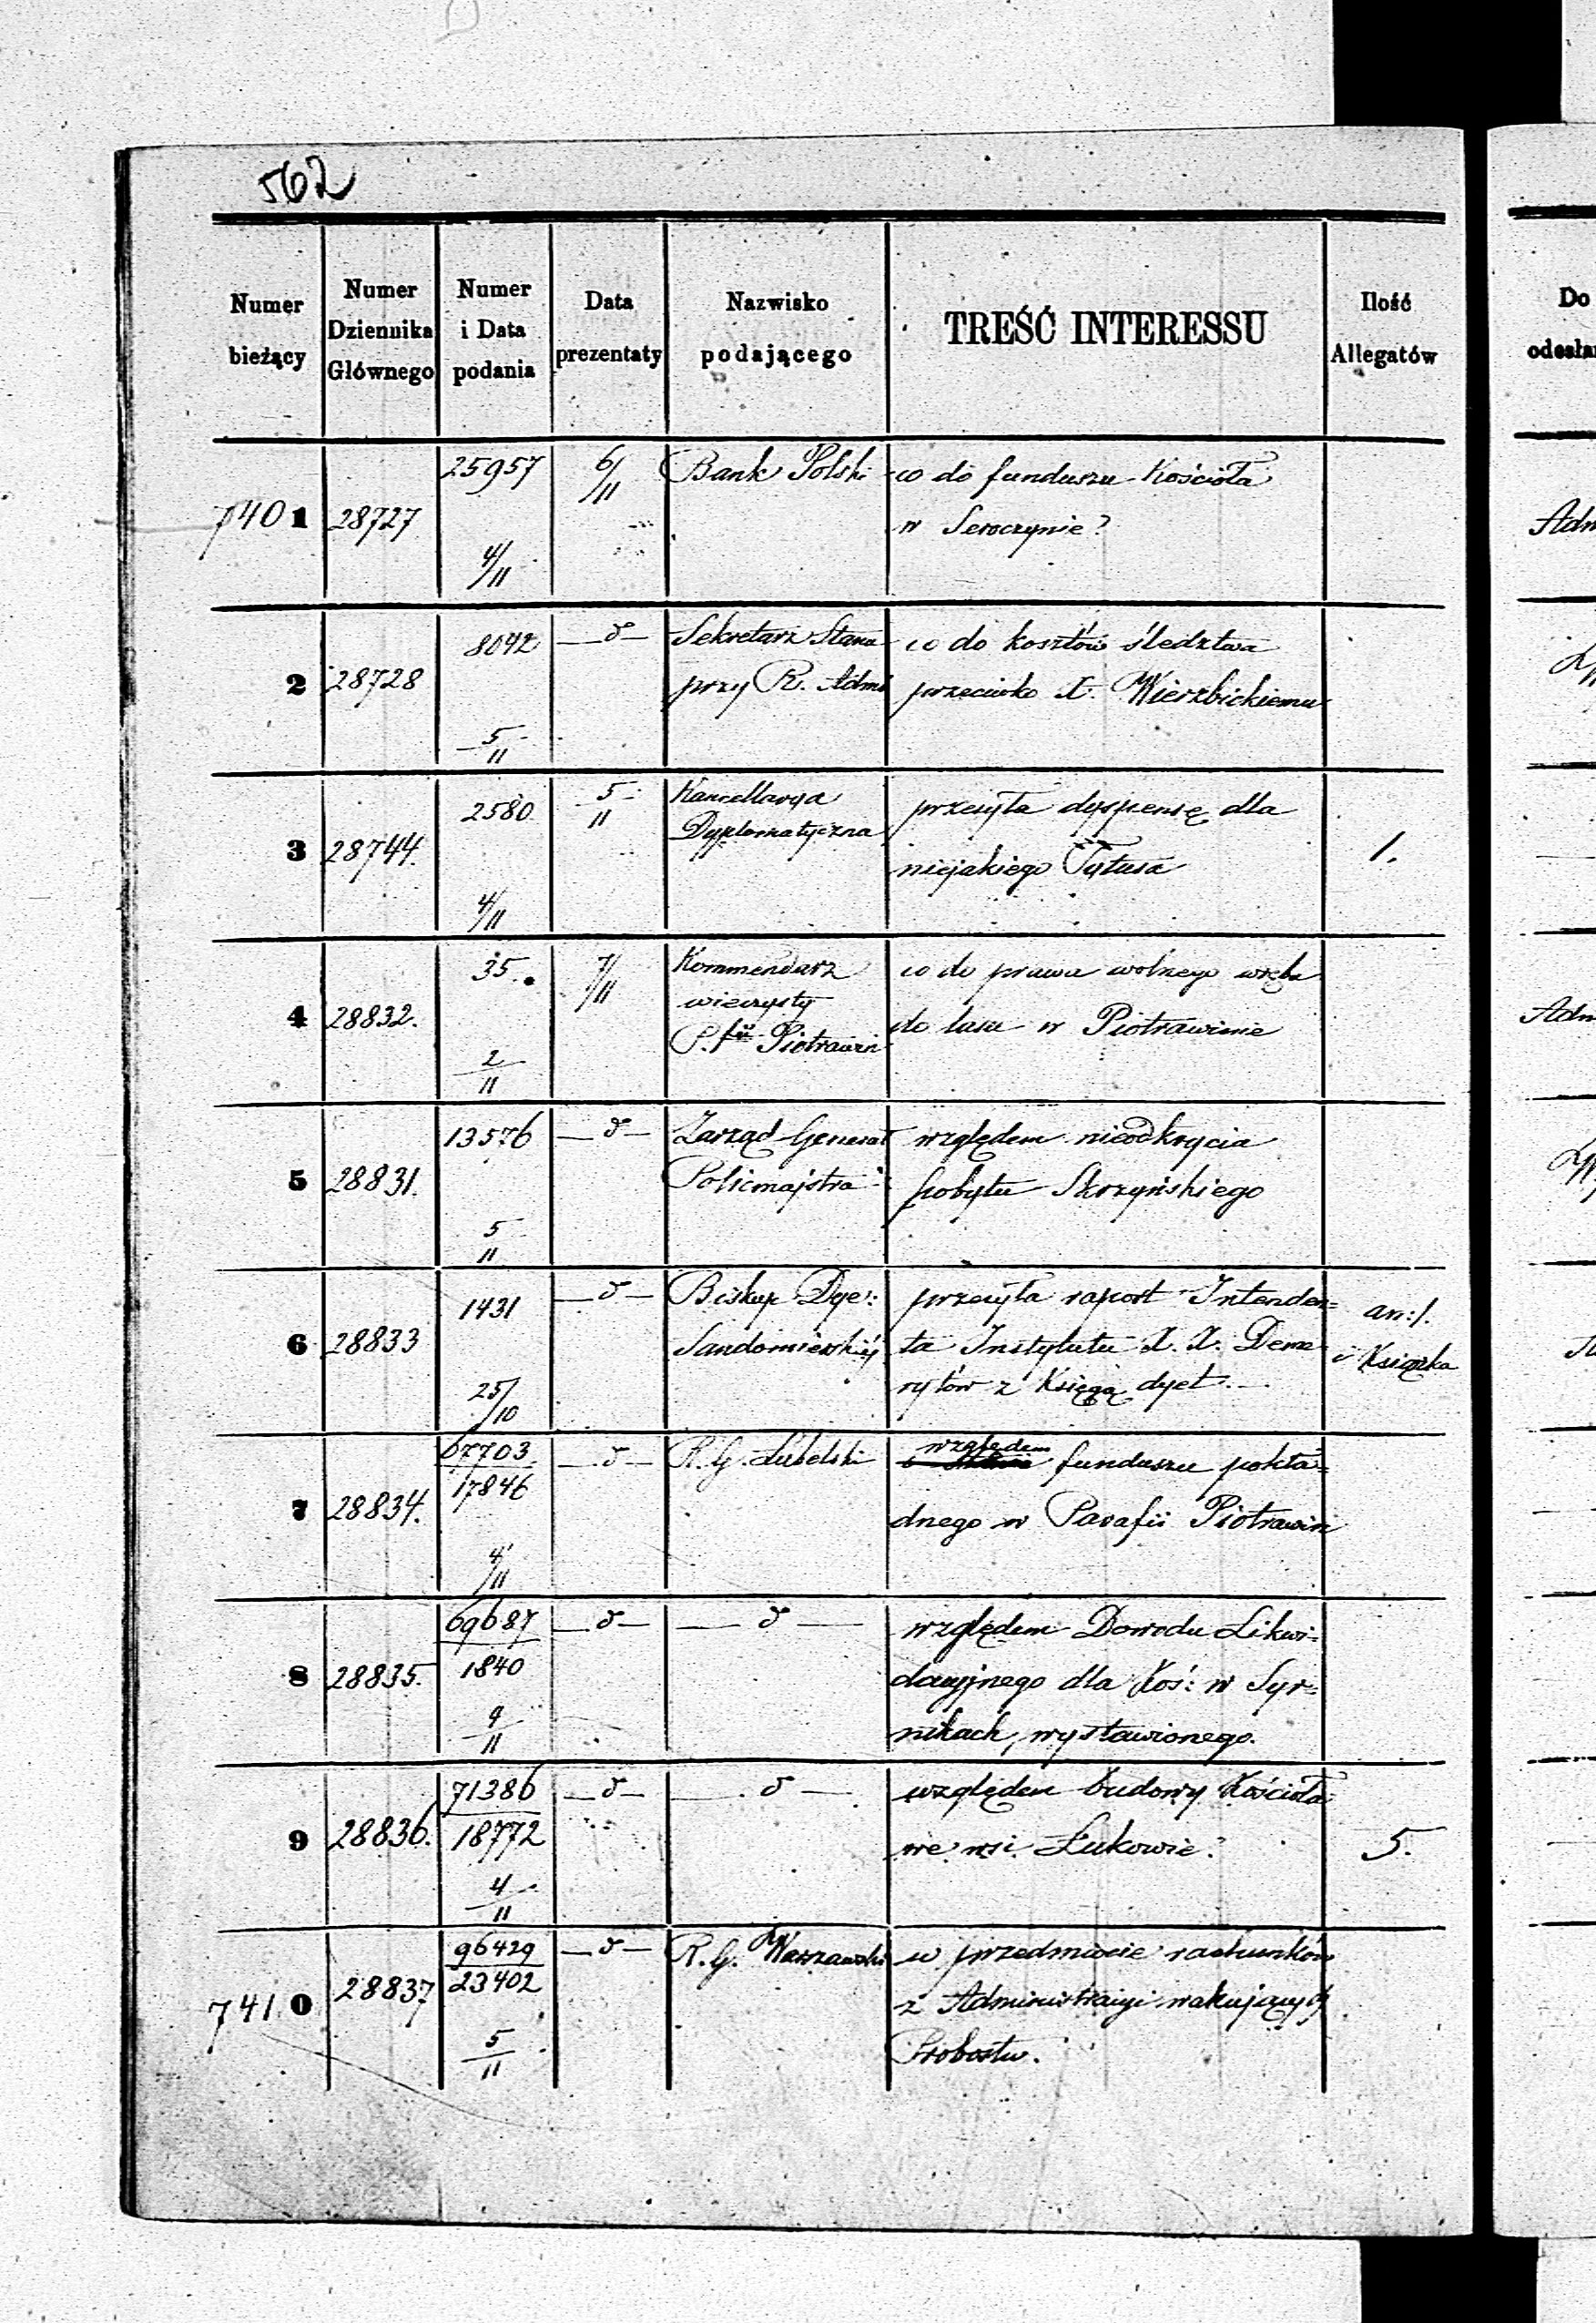 562
Numer bieżący
Numer Dziennika Głównego
Numer i Data podania
Data prezentaty
Nazwisko podającego
TREŚĆ INTERESSU
Ilość Allegatów
Do
7401 28727 25957 4/11 6/11 Bank Polski co do funduszu Kościoła
w Seroczynie?
Adm
2 28728 8042 5/11 —d°— Sekretarz Stanu co do kosztów śledztwa
przy R. Admi przeciwko X. Wierzbickiemu
3 28744. 2580. 4/11 5/11 Kancellarya przesyła dyspensę dla
Dyplomatyczna niejakiego Tytusa 1.
4 28832. 35. 2/11 7/11 Kommendarz co do prawa wolnego wrębu
wieczysty
P.fii Piotrawin do lasu w Piotrawinie
Adm
5 28831. 13576 5/11 —d°— Zarząd Generał względem nieodkrycia
Policmajstra pobytu Skrzyńskiego
6 28833 1431 25/10 —d°— Biskup Dye: przesyła raport Intenden= an:1.
Sandomierskiéj ta Instytutu X. X. Deme i Książka
rytów z Księgą dyet.—
7 28834. 67703 17846 4/11 —d°— R. G. Lubelski względem funduszu pokła=
dnego w Parafii Piotrawin
8 28835. 69687 1840 4/11 —d°— —d°— względem Dowodu Likwi=
dacyjnego dla Koś: w Syr=
nikach, wystawionego.
9 28836. 71386 18772 4/11 —d°— —d°— względem budowy Kościoła
we wsi Łukowie? 5.
7410 28837 96429 23402 5/11 —d°— R. G. Warszawski w przedmiocie rachunków
z Administracyi wakujących
Probostw.